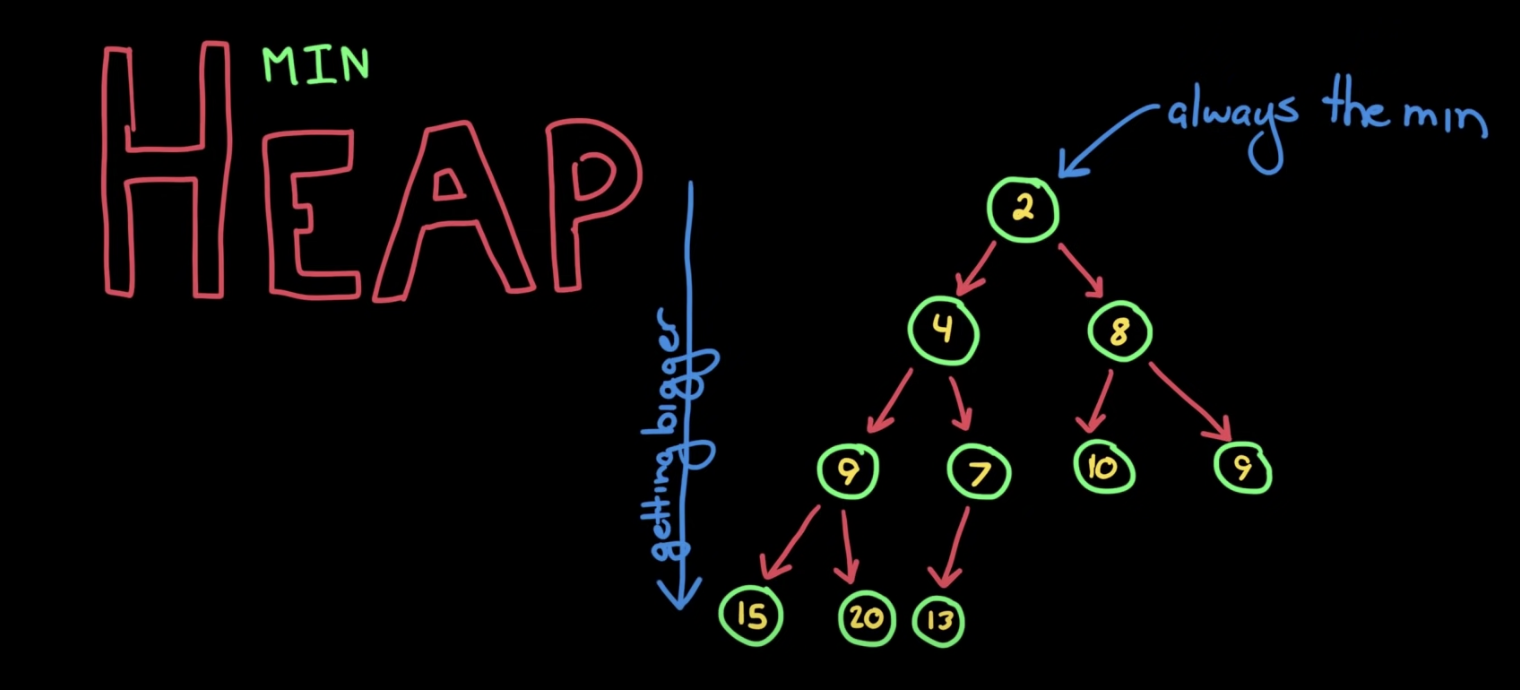 MIN
HEAP
always the min
getting bigger
2
4 8
9 7 10 9
15 20 13